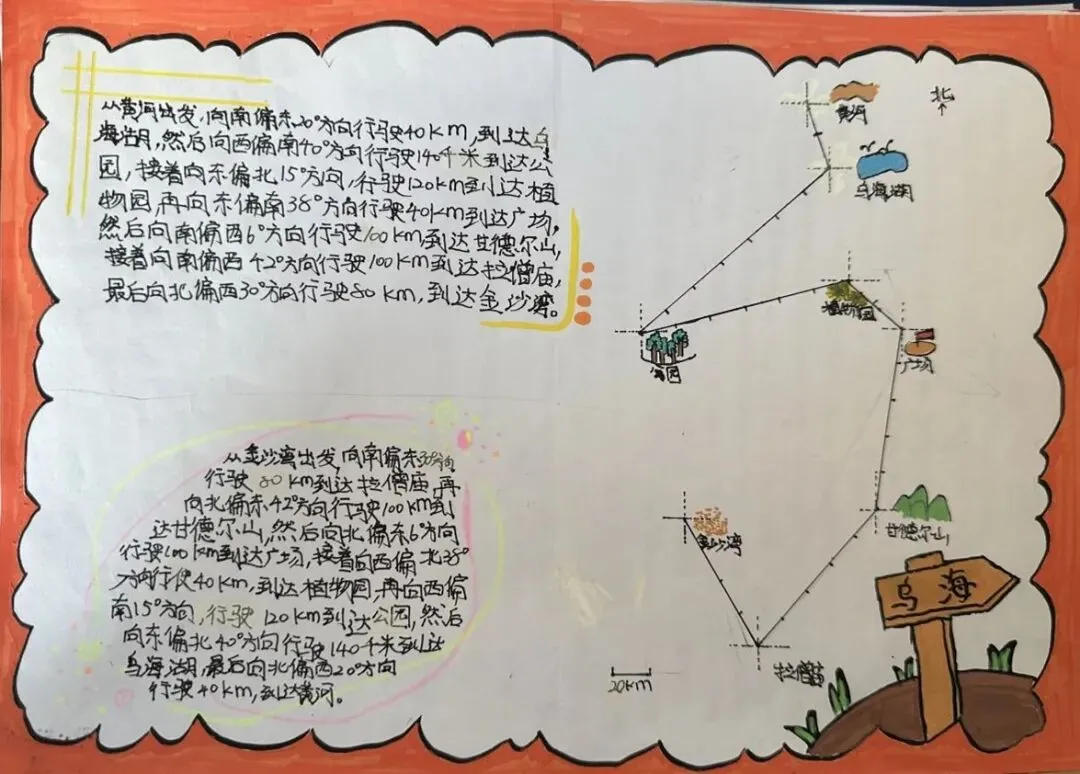 从黄河出发,向南偏东20°方向行驶40km,到达乌
海湖,然后向西偏南40°方向行驶140千米到达公
园,接着向东偏北15°方向,行驶120km到达植
物园,再向东偏南38°方向行驶40km到达广场,
然后向南偏西6°方向行驶100km,到达甘德尔山,
接着向南偏西42°方向行驶100km到达拉僧庙,
最后向北偏西30°方向行驶80km,到达金沙湾。
从金沙湾出发,向南偏东30°方向
行驶80km到达拉僧庙,再
向北偏东42°方向行驶100km到
达甘德尔山,然后向北偏东6°方向
行驶100km到达广场,接着向西偏北38°
方向行使40km,到达植物园,再向西偏
南15°方向,行驶120km到达公园,然后
向东偏北40°方向行驶140千米到达
乌海湖,最后向北偏西20°方向
行驶40km,到达黄河。
北
黄河
乌海湖
植物园
广场
公园
甘德尔山
金沙湾
拉僧庙
20km
乌海